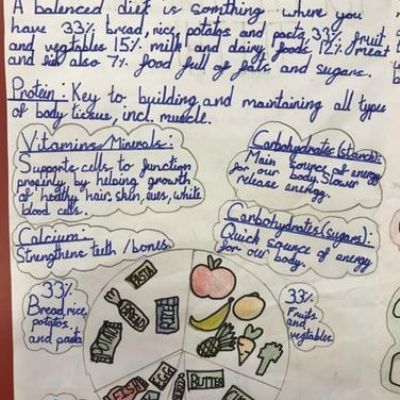 A balenced diet is somthing where you
have 33% bread, rice, potatos and pasta, 33% fruit
and vegtables 15% milk and dairy foods 12% meat
and also 7% food full of fats and sugars.
Protein: Key to building and maintaining all types
of body tissue, incl. muscle.
Vitamins/Minerals:
Supports cells to function
properly by helping growth
of healthy hair, skin, eyes, white
blood cells.
Carbohydrates (starch):
Main source of energy
for our body. Slower
release energy.
Calcium:
Strengthens teeth/bones.
Carbohydrates (sugars):
Quick source of energy
for our body.
33%
Bread, rice,
potatos
and pasta
PASTA
BREAD
RICE
POTATO
33%
Fruits
and
vegtables
EGGS
BUTTER